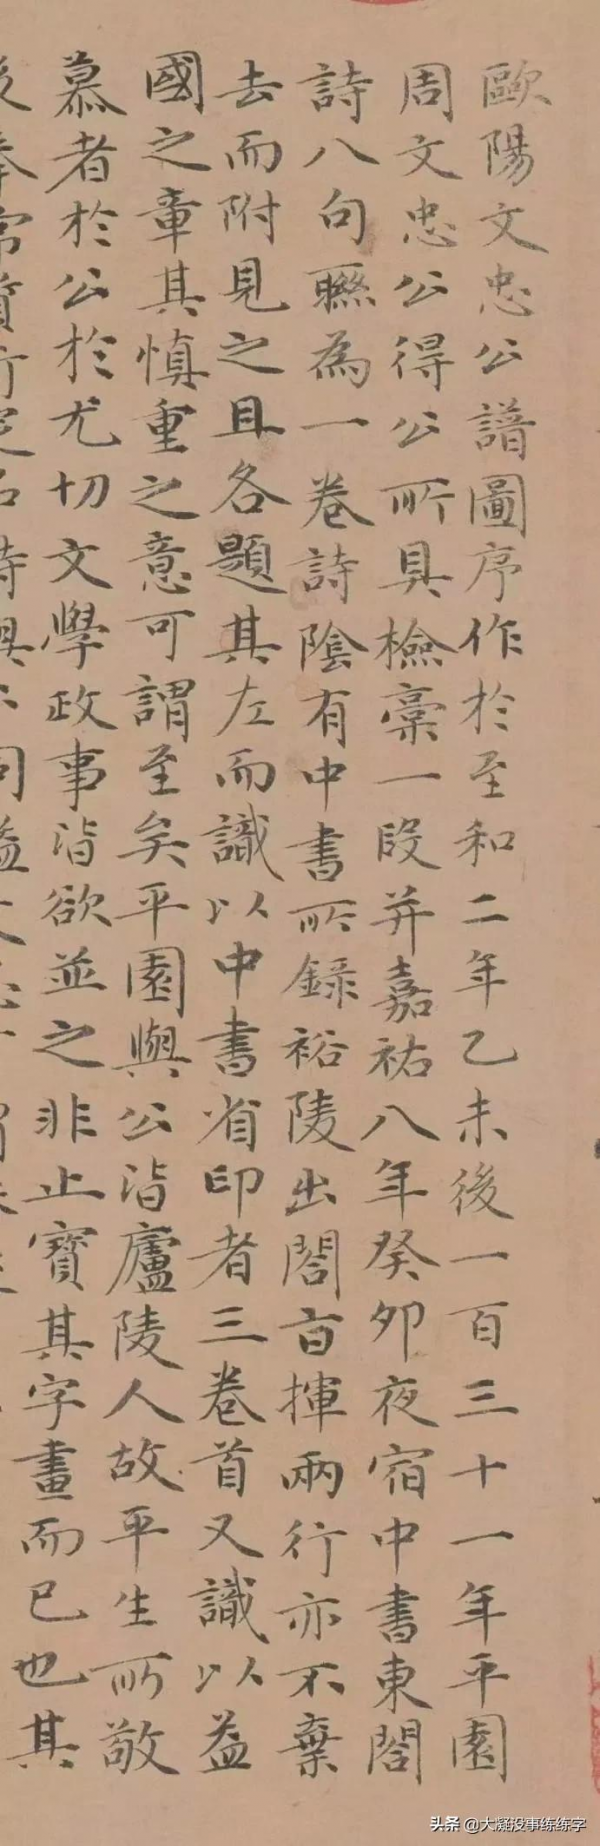 歐陽文忠公譜圖序作於至和二年乙未後一百三十一年平園
周文忠公得公所具檢稾一段并嘉祐八年癸卯夜宿中書東閤
詩八句聯為一卷詩陰有中書所錄裕陵出閤旨揮兩行亦不棄
去而附見之且各題其左而識以中書省印者三卷首又識以益
國之章其慎重之意可謂至矣平園與公皆廬陵人故平生所敬
慕者於公於尤切文學政事皆欲並之非止寶其字畫而已也其
頭条 @大凝没事练练字